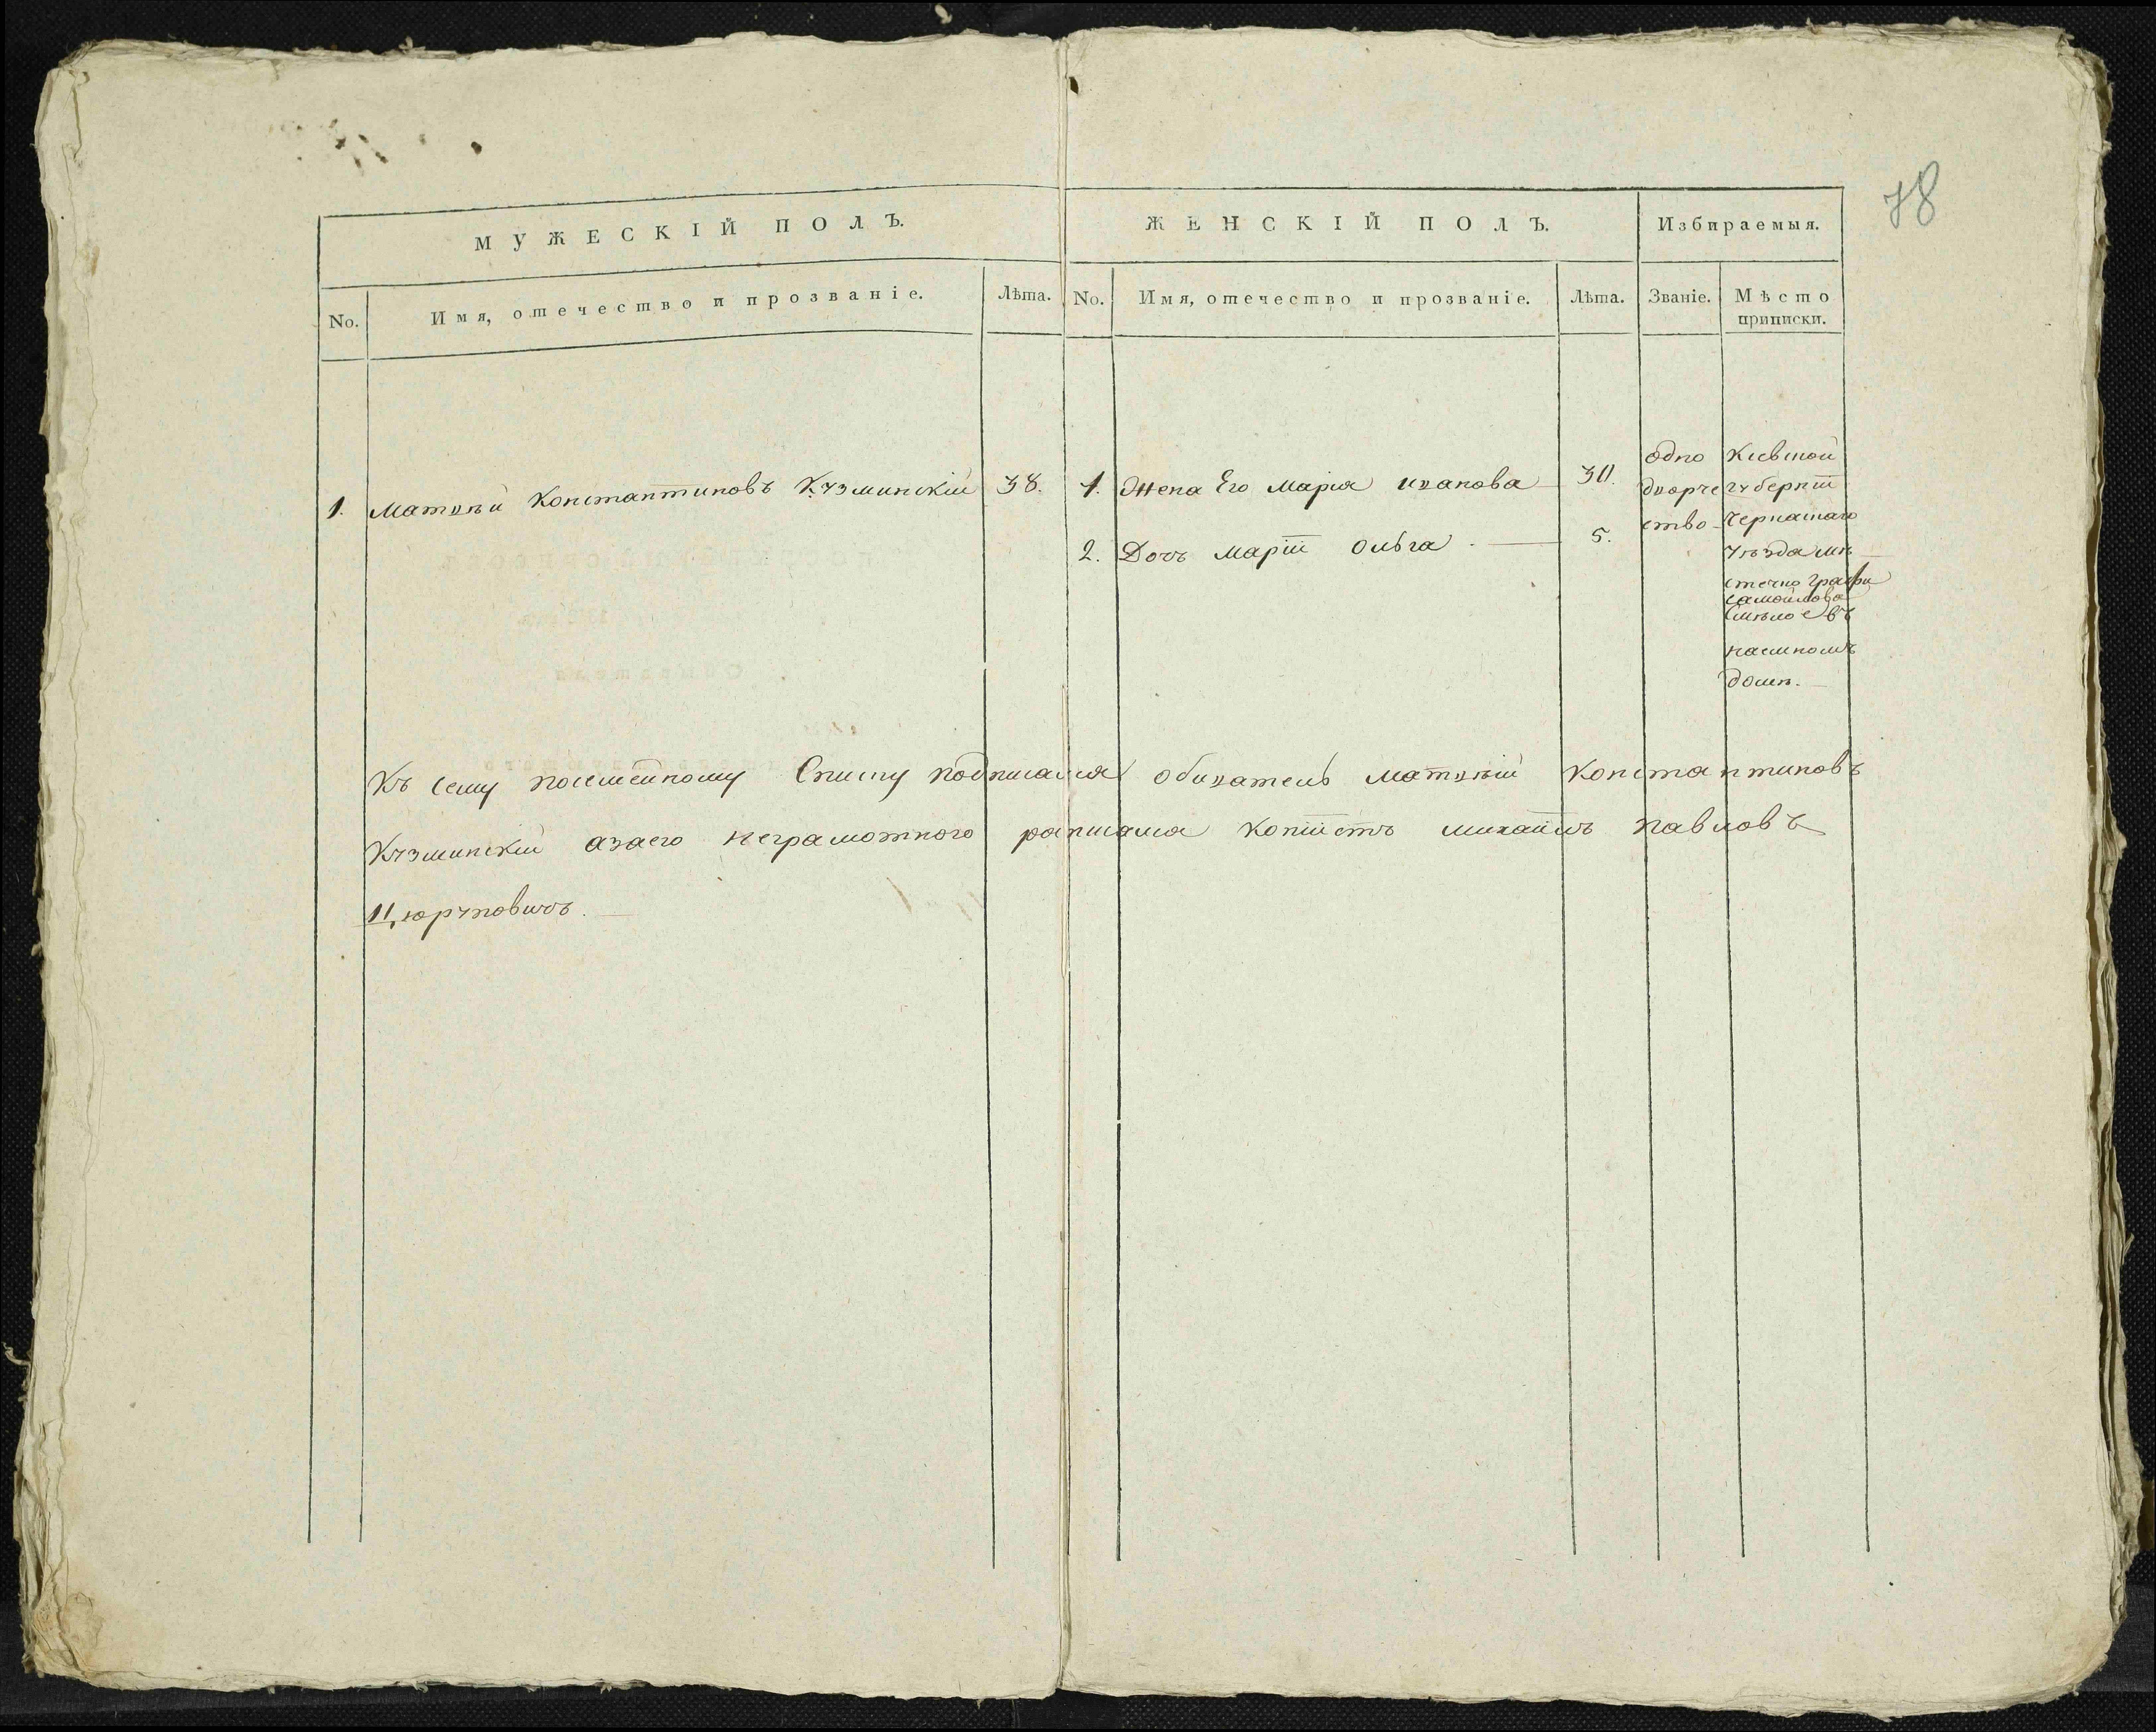 78
МУЖЕСКІЙ ПОЛЪ.
ЖЕНСКІЙ ПОЛЪ.
Избираемыя.
No.
Имя, отечество и прозваніе.
Лѣта.
No.
Имя, отечество и прозваніе.
Лѣта.
Званіе.
Мѣсто
приписки.
1. Матвѣй Константиновъ Кузминскій 38.
1. Жена Его Марія иванова 30.
2. Дочь Маріи Ольга 5.
одно
дворче
ство
Кіевской
губерніи
Черкаскаго
уѣзда мѣ
стечко Графа
Самойлова
Смѣлое въ
наемномъ
домѣ.
Къ сему посемейному Списку подписался обиватель Матвѣій Константиновъ
Кузминскій азаего неграмотного расписался копіистъ михаилъ Павловъ
Цюруповичъ.